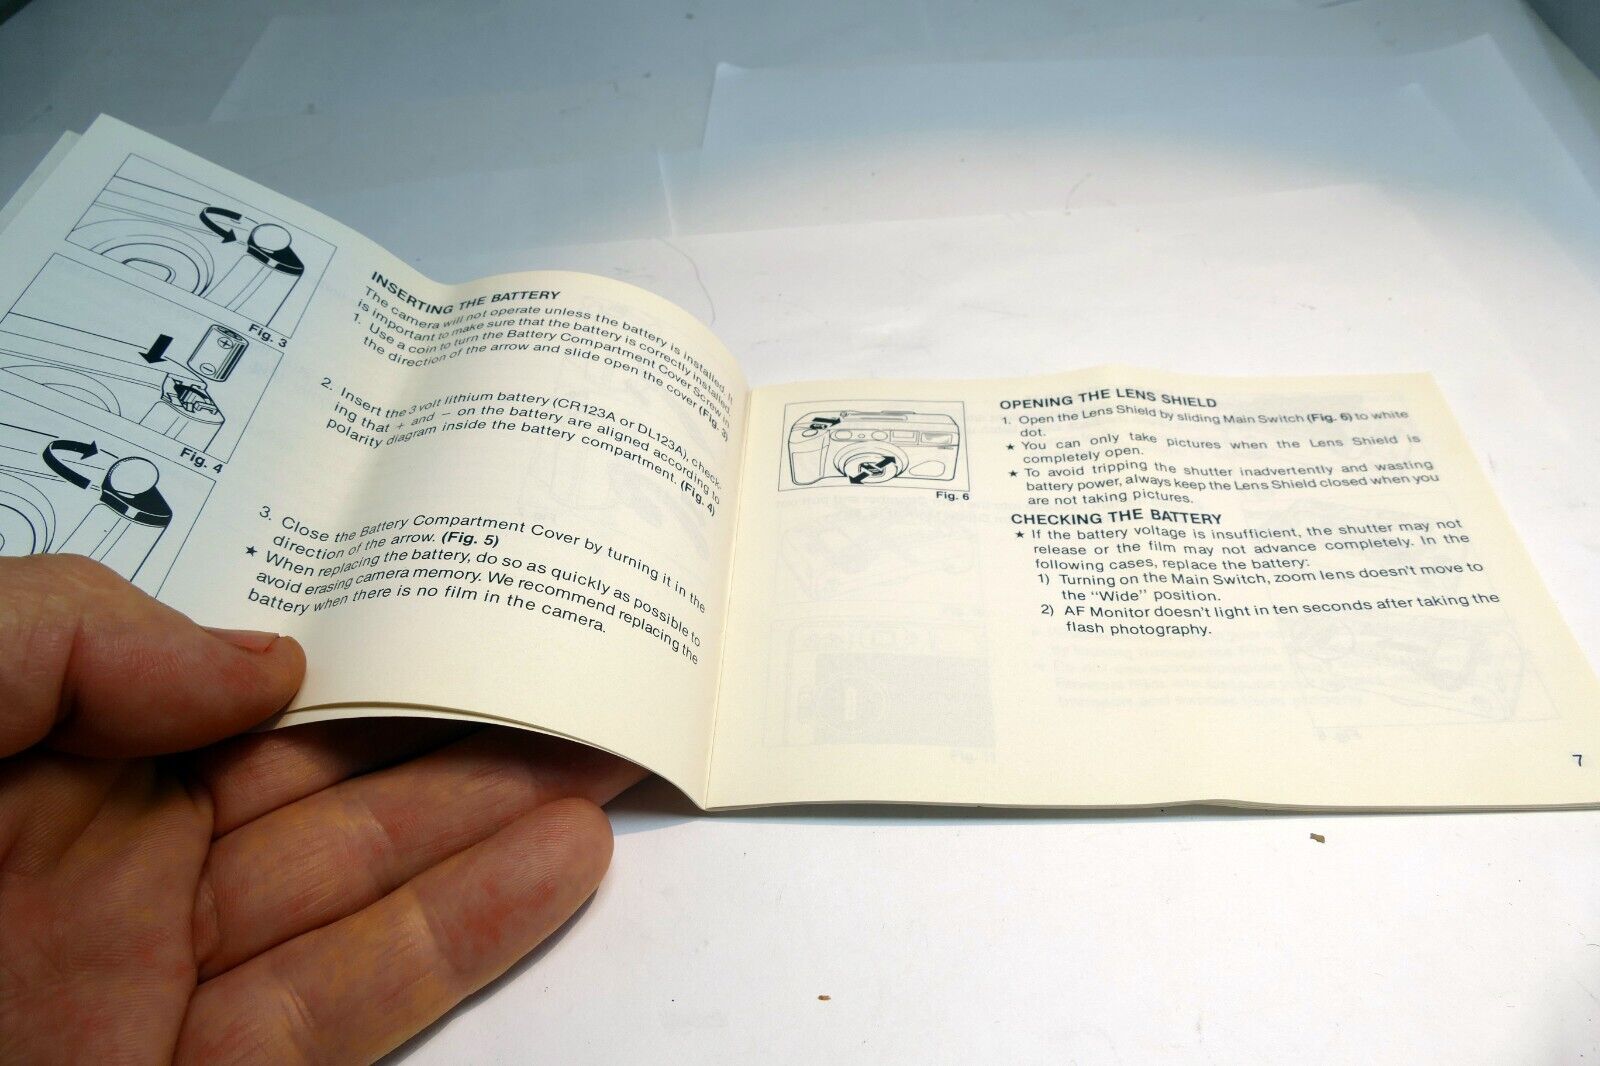 Fig. 3
Fig. 4
INSERTING THE BATTERY
The camera will not operate unless the battery is installed. It
is important to make sure that the battery is correctly installed.
1. Use a coin to turn the Battery Compartment Cover Screw in
the direction of the arrow and slide open the cover (Fig. 3)
2. Insert the 3 volt lithium battery (CR123A or DL123A), check-
ing that + and − on the battery are aligned according to
polarity diagram inside the battery compartment. (Fig. 4)
3. Close the Battery Compartment Cover by turning it in the
direction of the arrow. (Fig. 5)
★ When replacing the battery, do so as quickly as possible to
avoid erasing camera memory. We recommend replacing the
battery when there is no film in the camera.
Fig. 6
OPENING THE LENS SHIELD
1. Open the Lens Shield by sliding Main Switch (Fig. 6) to white
dot.
★ You can only take pictures when the Lens Shield is
completely open.
★ To avoid tripping the shutter inadvertently and wasting
battery power, always keep the Lens Shield closed when you
are not taking pictures.
CHECKING THE BATTERY
★ If the battery voltage is insufficient, the shutter may not
release or the film may not advance completely. In the
following cases, replace the battery:
1) Turning on the Main Switch, zoom lens doesn't move to
the "Wide" position.
2) AF Monitor doesn't light in ten seconds after taking the
flash photography.
7